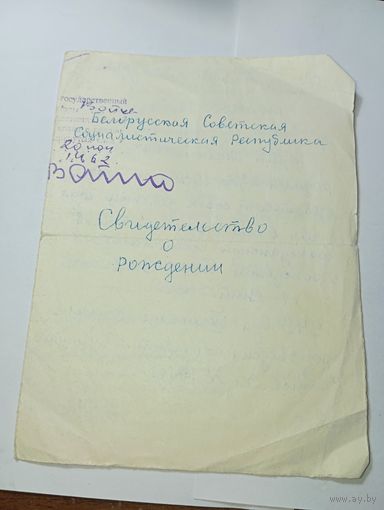 государственный
Белорусская Советская
Социалистическая Республика
Свидетельство
о
рождении
www.ay.by